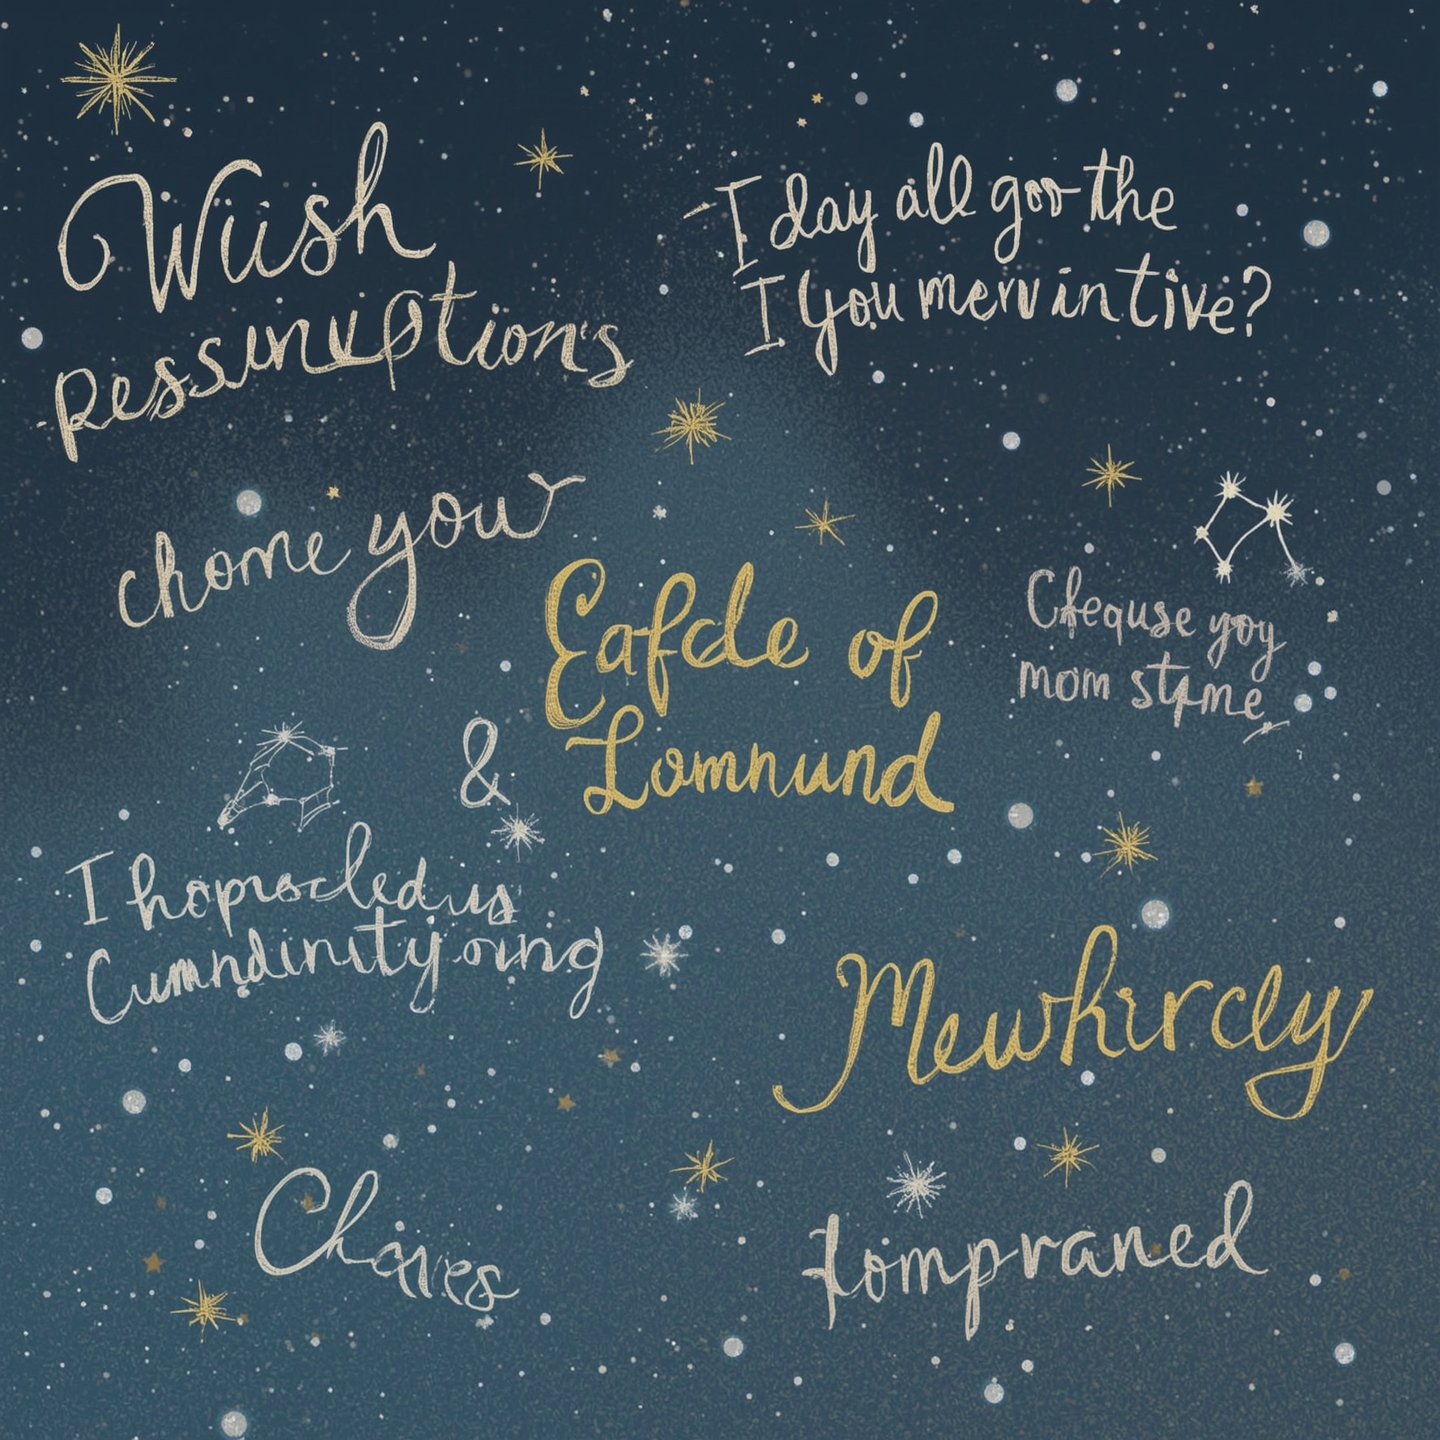 Wiish
Ressinuptions
I day all goo the
I you mervintive?
chome your
Eafcle of
Lomnund
Cfequse yoy
mom stpme
&
I hoprocled us
Cumndinity oring
Mewhircly
Chaires
Iompraned